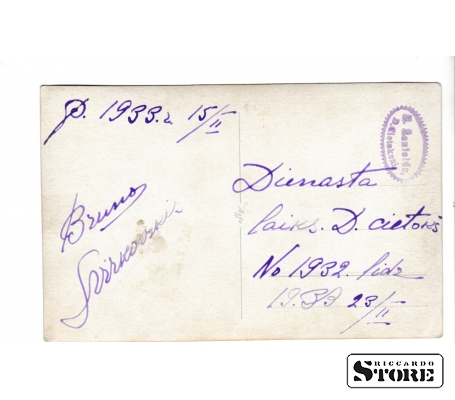 D. 1933.g 15/II
Bruno
Dienasta
laiks. D. cietoks
No 1932. līdz
1933 23/II
RICCARDO
STORE